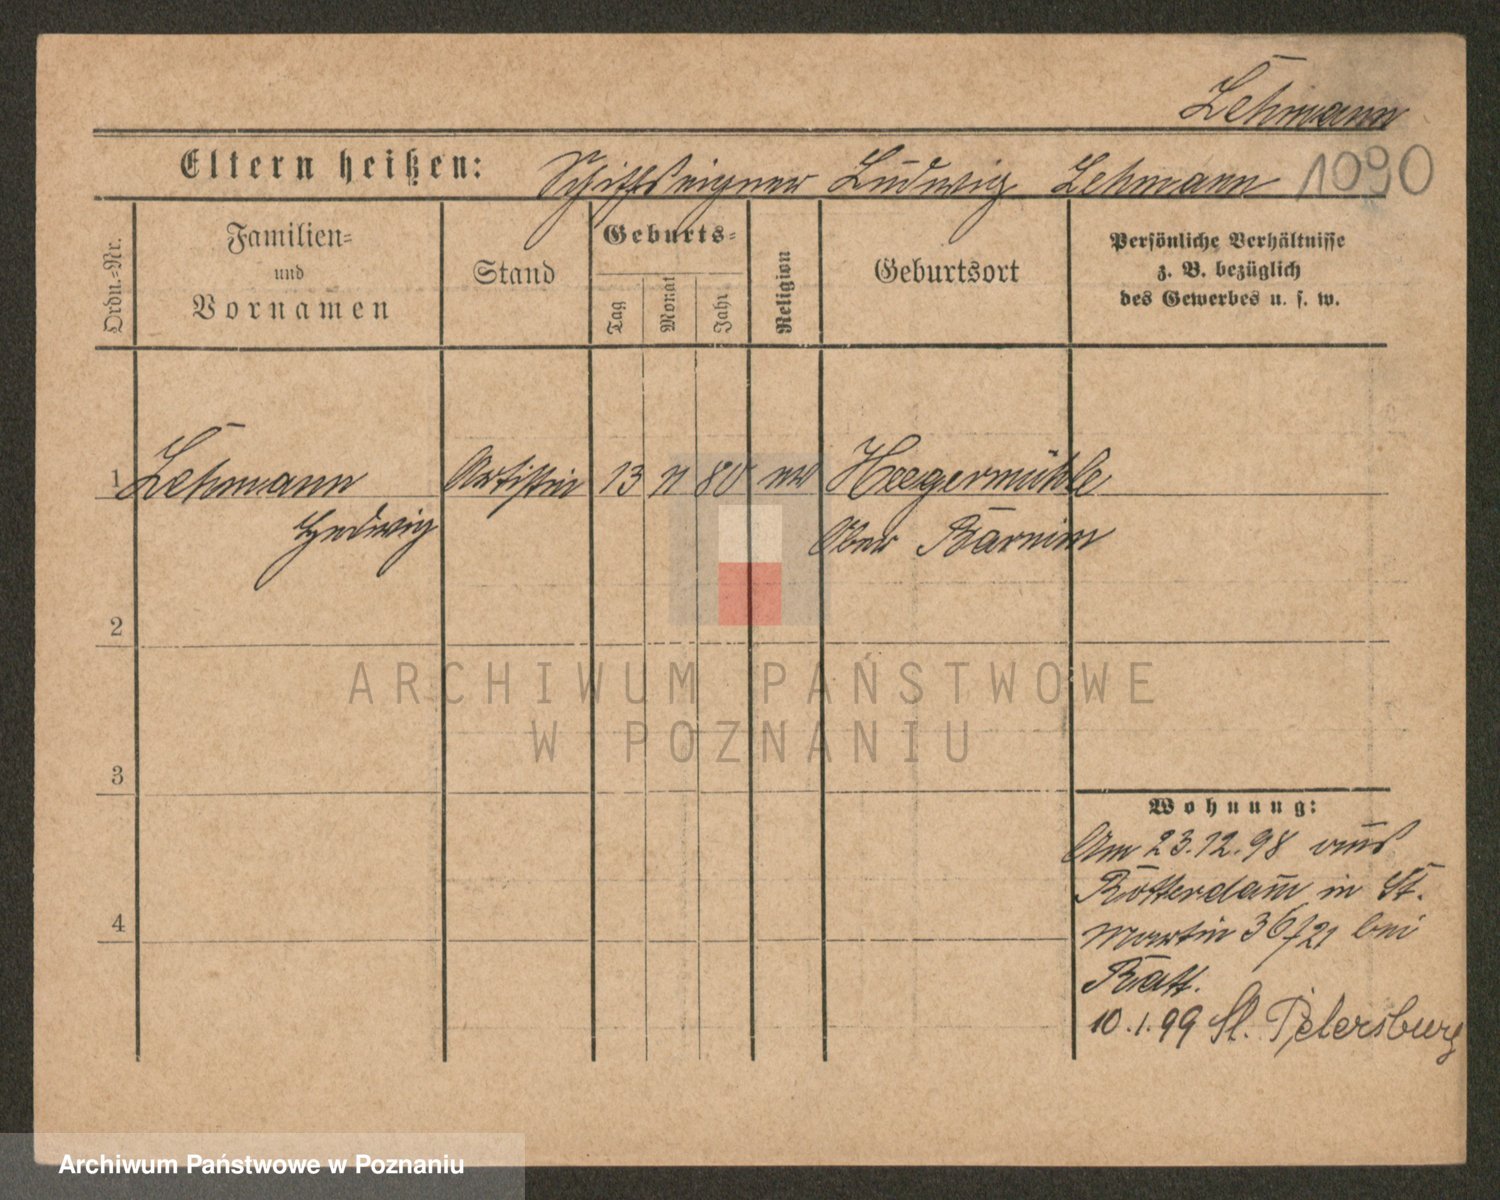 Lehmann
Eltern heißen: Schiffseigner Ludwig Lehmann 1090
Ordn.-Nr.
Familien-
und
Vornamen
Stand
Geburts-
Tag
Monat
Jahr
Religion
Geburtsort
Persönliche Verhältnisse
z. B. bezüglich
des Gewerbes u. s. w.
1 Lehmann Artistin 13 11 80 ev Heegermühle
Hedwig Ober Barnim
2
3
4
Wohnung:
Am 23.12.98 aus
Rotterdam in St.
Martin 36/21 bei
Ratt.
10.1.99 St. Petersburg
ARCHIWUM PAŃSTWOWE
W POZNANIU
Archiwum Państwowe w Poznaniu